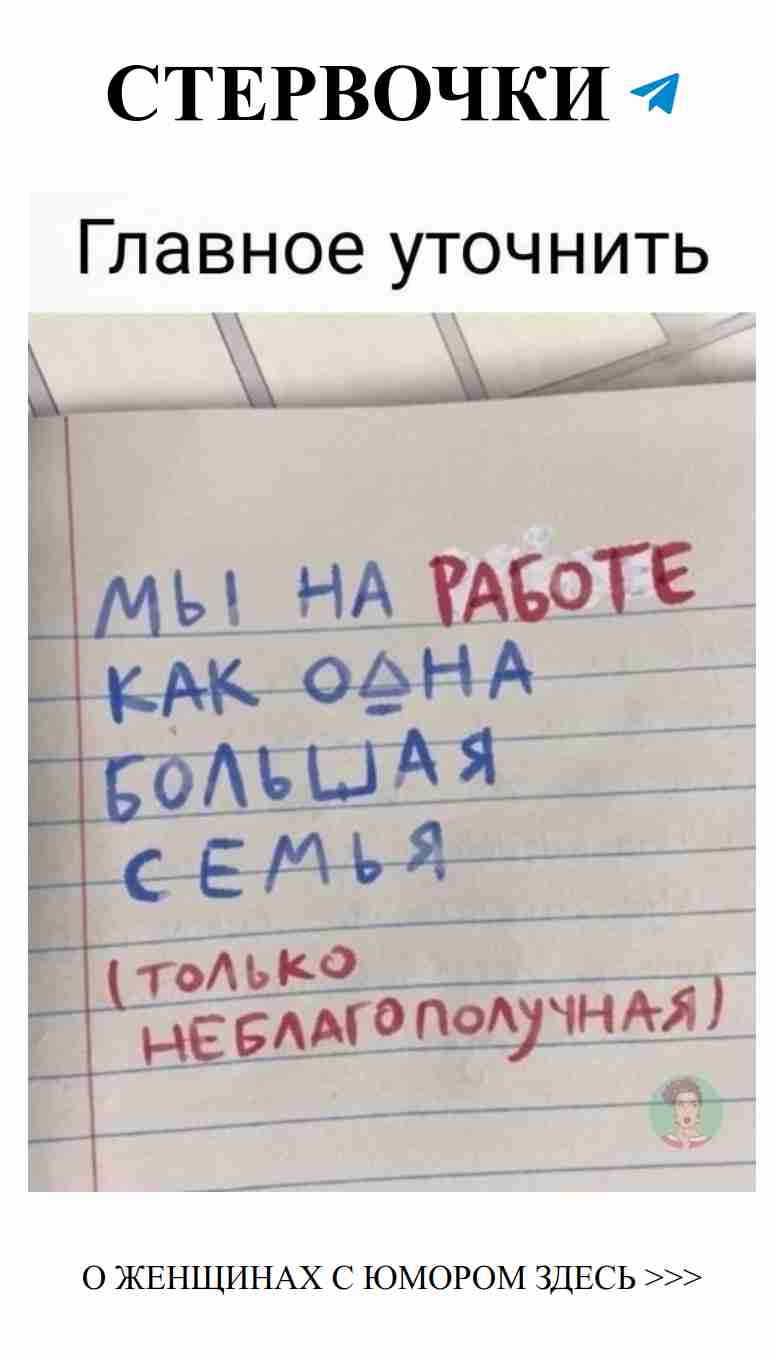 СТЕРВОЧКИ
Главное уточнить
МЫ НА РАБОТЕ
КАК ОДНА
БОЛЬШАЯ
СЕМЬЯ
(ТОЛЬКО
НЕБЛАГОПОЛУЧНАЯ)
О ЖЕНЩИНАХ С ЮМОРОМ ЗДЕСЬ >>>